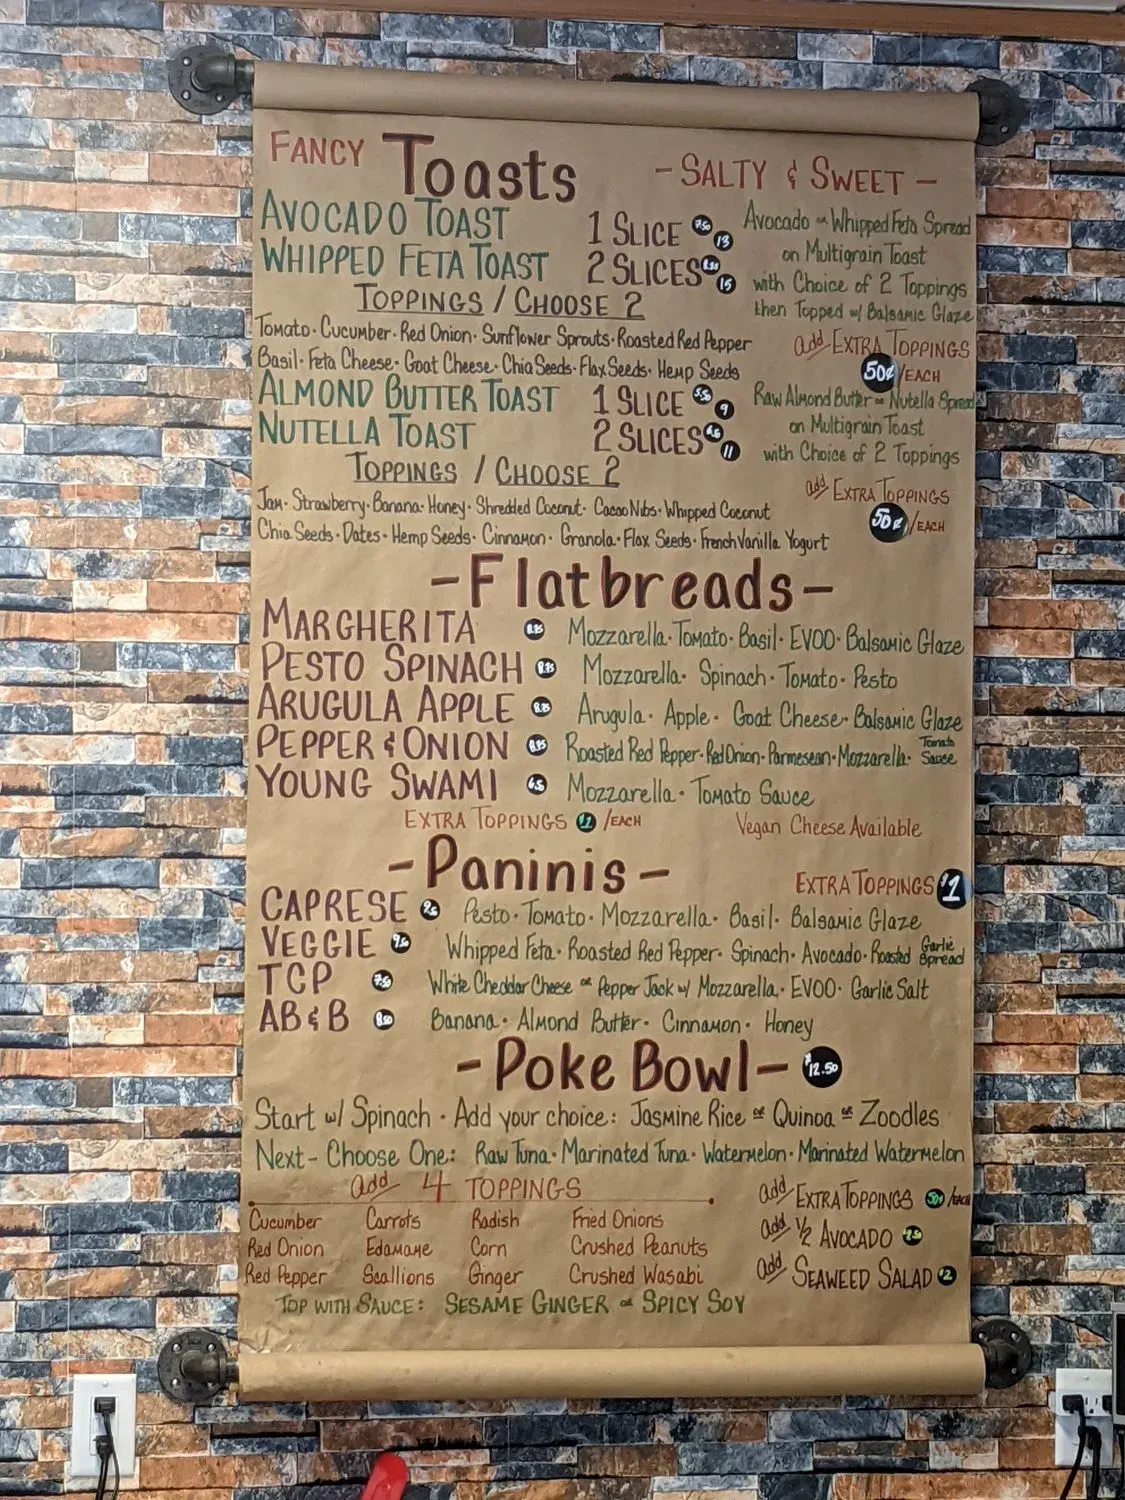 FANCY Toasts
- SALTY & SWEET -
AVOCADO TOAST 1 SLICE 7.50 13
WHIPPED FETA TOAST 2 SLICES 15
Avocado or Whipped Feta Spread
on Multigrain Toast
with Choice of 2 Toppings
then Topped w/ Balsamic Glaze
TOPPINGS / CHOOSE 2
Tomato · Cucumber · Red Onion · Sunflower Sprouts · Roasted Red Pepper
Basil · Feta Cheese · Goat Cheese · Chia Seeds · Flax Seeds · Hemp Seeds
add EXTRA TOPPINGS
50¢/EACH
ALMOND BUTTER TOAST 1 SLICE 5.50 9
NUTELLA TOAST 2 SLICES 11
Raw Almond Butter or Nutella Spread
on Multigrain Toast
with Choice of 2 Toppings
TOPPINGS / CHOOSE 2
Jam · Strawberry · Banana · Honey · Shredded Coconut · Cacao Nibs · Whipped Coconut
Chia Seeds · Dates · Hemp Seeds · Cinnamon · Granola · Flax Seeds · French Vanilla Yogurt
add EXTRA TOPPINGS
50¢/EACH
- Flatbreads -
MARGHERITA 8.95 Mozzarella · Tomato · Basil · EVOO · Balsamic Glaze
PESTO SPINACH Mozzarella · Spinach · Tomato · Pesto
ARUGULA APPLE Arugula · Apple · Goat Cheese · Balsamic Glaze
PEPPER & ONION 8.95 Roasted Red Pepper · Red Onion · Parmesean · Mozzarella · Tomato Sauce
YOUNG SWAMI 6.50 Mozzarella · Tomato Sauce
EXTRA TOPPINGS $1 /EACH
Vegan Cheese Available
- Paninis -
EXTRA TOPPINGS $1
CAPRESE 9.50 Pesto · Tomato · Mozzarella · Basil · Balsamic Glaze
VEGGIE 9.50 Whipped Feta · Roasted Red Pepper · Spinach · Avocado · Roasted Garlic Spread
TCP 7.50 White Cheddar Cheese or Pepper Jack w/ Mozzarella · EVOO · Garlic Salt
AB & B 8.50 Banana · Almond Butter · Cinnamon · Honey
- Poke Bowl - $12.50
Start w/ Spinach · Add your choice: Jasmine Rice or Quinoa or Zoodles
Next - Choose One: Raw Tuna · Marinated Tuna · Watermelon · Marinated Watermelon
add 4 TOPPINGS
Cucumber Carrots Radish Fried Onions
Red Onion Edamame Corn Crushed Peanuts
Red Pepper Scallions Ginger Crushed Wasabi
add EXTRA TOPPINGS 50¢/EACH
add 1/2 AVOCADO
add SEAWEED SALAD $2
TOP WITH SAUCE: SESAME GINGER or SPICY SOY